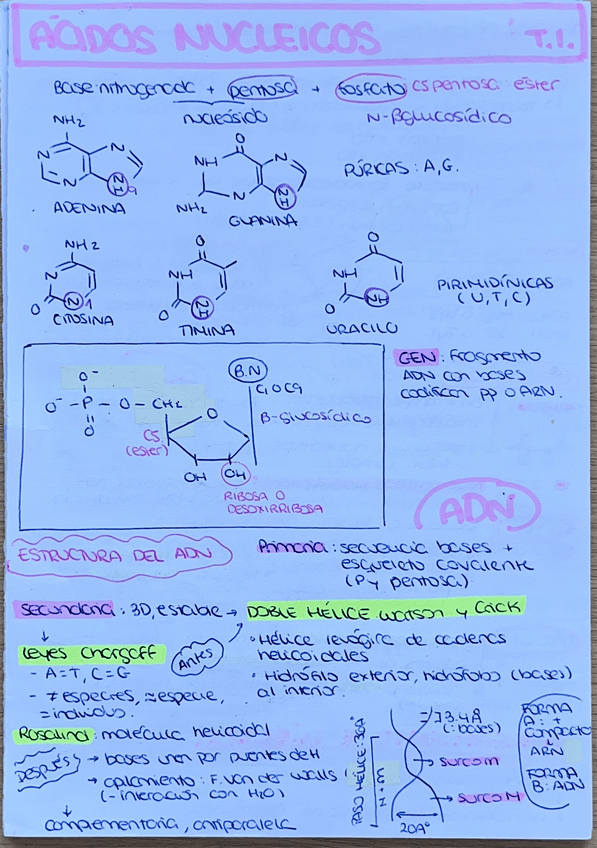 ÁCIDOS NUCLEICOS T.1.
Base nitrogenada + pentosa + fosfato C5 pentosa éster
nucleósido N-βglucosídico
NH2
N
N
N
NH
9
ADENINA
O
NH
N
N
NH
NH2
GUANINA
PÚRICAS: A, G.
NH2
N
O
N
1
CITOSINA
O
NH
O
NH
TIMINA
O
NH
O
NH
URACILO
PIRIMIDÍNICAS
(U, T, C)
GEN: Fragmento
ADN con bases
codifican pp o ARN.
O-
O- - P - O - CH2
O
O
B.N
C1 o C9
β-glucosídico
C5
(éster)
OH
OH
RIBOSA O
DESOXIRRIBOSA
ADN
ESTRUCTURA DEL ADN
Primaria: secuencia bases +
esqueleto covalente
(P y pentosa)
secundaria: 3D, estable → DOBLE HÉLICE Watson y Crick
Leyes Chargaff
Antes
- A=T, C=G
- ≠ especies, ≈ especie,
= individuo.
• Hélice levógira de cadenas
helicoidales
• Hidrófilo exterior, hidrófobo (bases)
al interior.
Rosalind: molécula helicoidal
Después
→ bases unen por puentes de H
→ apilamiento: F. Van der Walls
(- interacción con H2O)
complementaria, antiparalela
PASO HÉLICE: 36Aº
N + m
3.4Å
(: bases)
surco m
surco M
20Aº
FORMA
D: +
compacto
ARN
FORMA
B: ADN